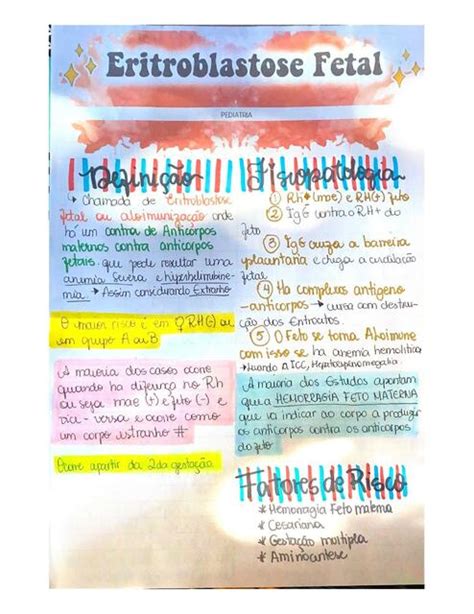 Eritroblastose Fetal
PEDIATRIA
Definição
↳ Chamada de Eritroblastose
fetal ou aloimunização onde
há um contra de Anticorpos
maternos contra anticorpos
fetais que pode resultar uma
anemia severa e hiperbilirrubine-
mia → Assim considerando Estranho
O maior risco é em ♀ RH(-) ou
em grupo A ou B
A maioria dos casos ocorre
quando há diferença no Rh
ou seja mãe (+) e feto (-) e
vice-versa e ocorre como
um corpo estranho #
Ocorre a partir da 2da gestação
Fisiopatologia
① Rh (mãe) e RH(+) feto
② IgG contra o RH+ do
feto
③ IgG cruza a barreira
placentária e chega a circulação
fetal
④ Há complexo antígeno
-anticorpos → cursa com destrui-
ção dos Eritrócitos.
⑤ O Feto se torna Aloimune
com isso se há anemia hemolítica
↳ levando a ICC, Hepatoesplenomegalia
A maioria dos Estudos apontam
que a HEMORRAGIA FETO MATERNA
que ia indicar ao corpo a produzir
os anticorpos contra os anticorpos
do feto
Fatores de Risco
* Hemorragia Feto materna
* Cesariana
* Gestação multipla
* Aminocintese